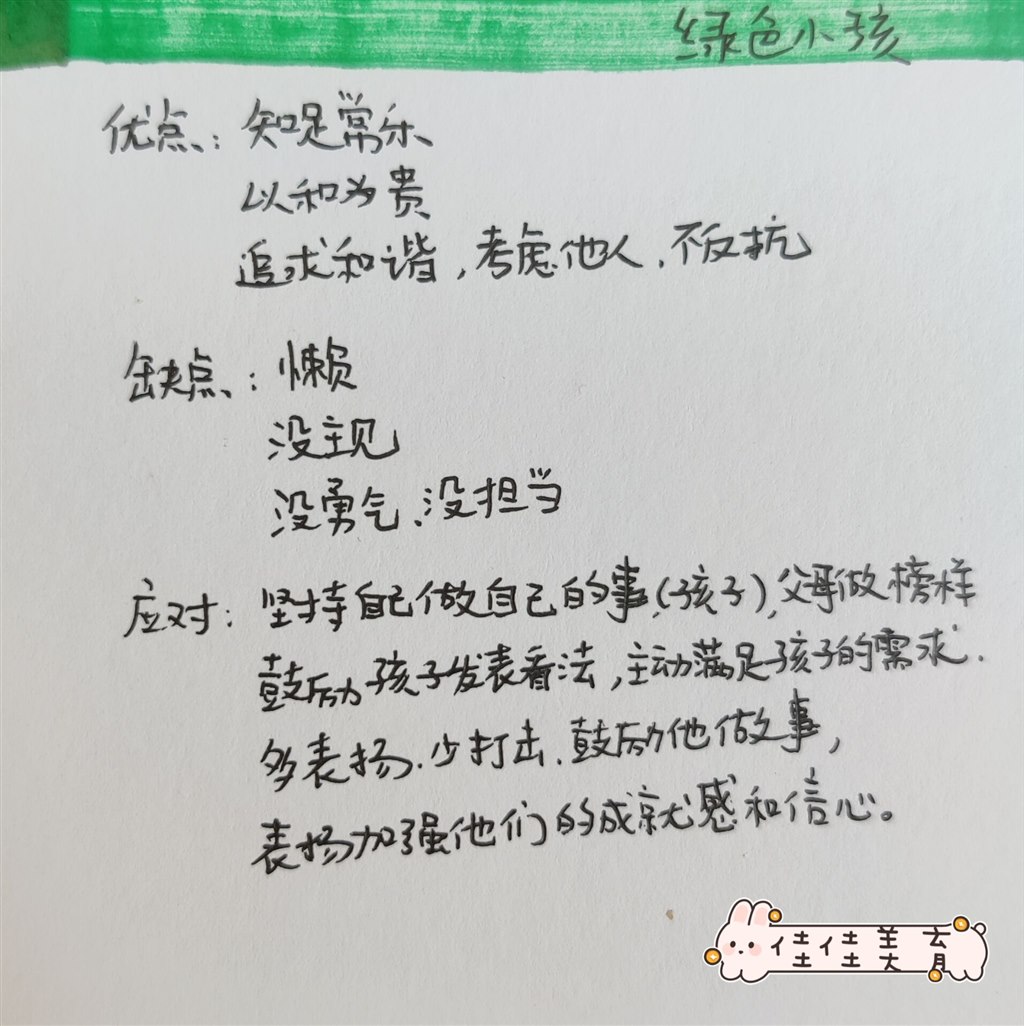 绿色小孩
优点：知足常乐
以和为贵
追求和谐，考虑他人、不反抗
缺点：懒
没主见
没勇气、没担当
应对：坚持自己做自己的事(孩子),父母做榜样
鼓励孩子发表看法，主动满足孩子的需求.
多表扬.少打击.鼓励他做事，
表扬加强他们的成就感和信心。
佳佳美育